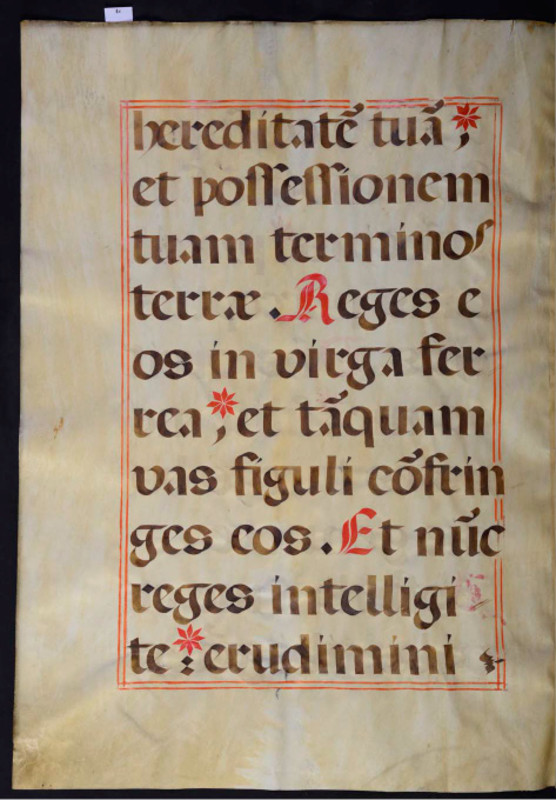 hereditatẽ tuã *;
et poſſeſſionem
tuam terminoſ
terræ . Reges e
os in virga fer
rea *; et tãquam
vas figuli cõfrin
ges eos . Et nũc
reges intelligi
te *: erudimini